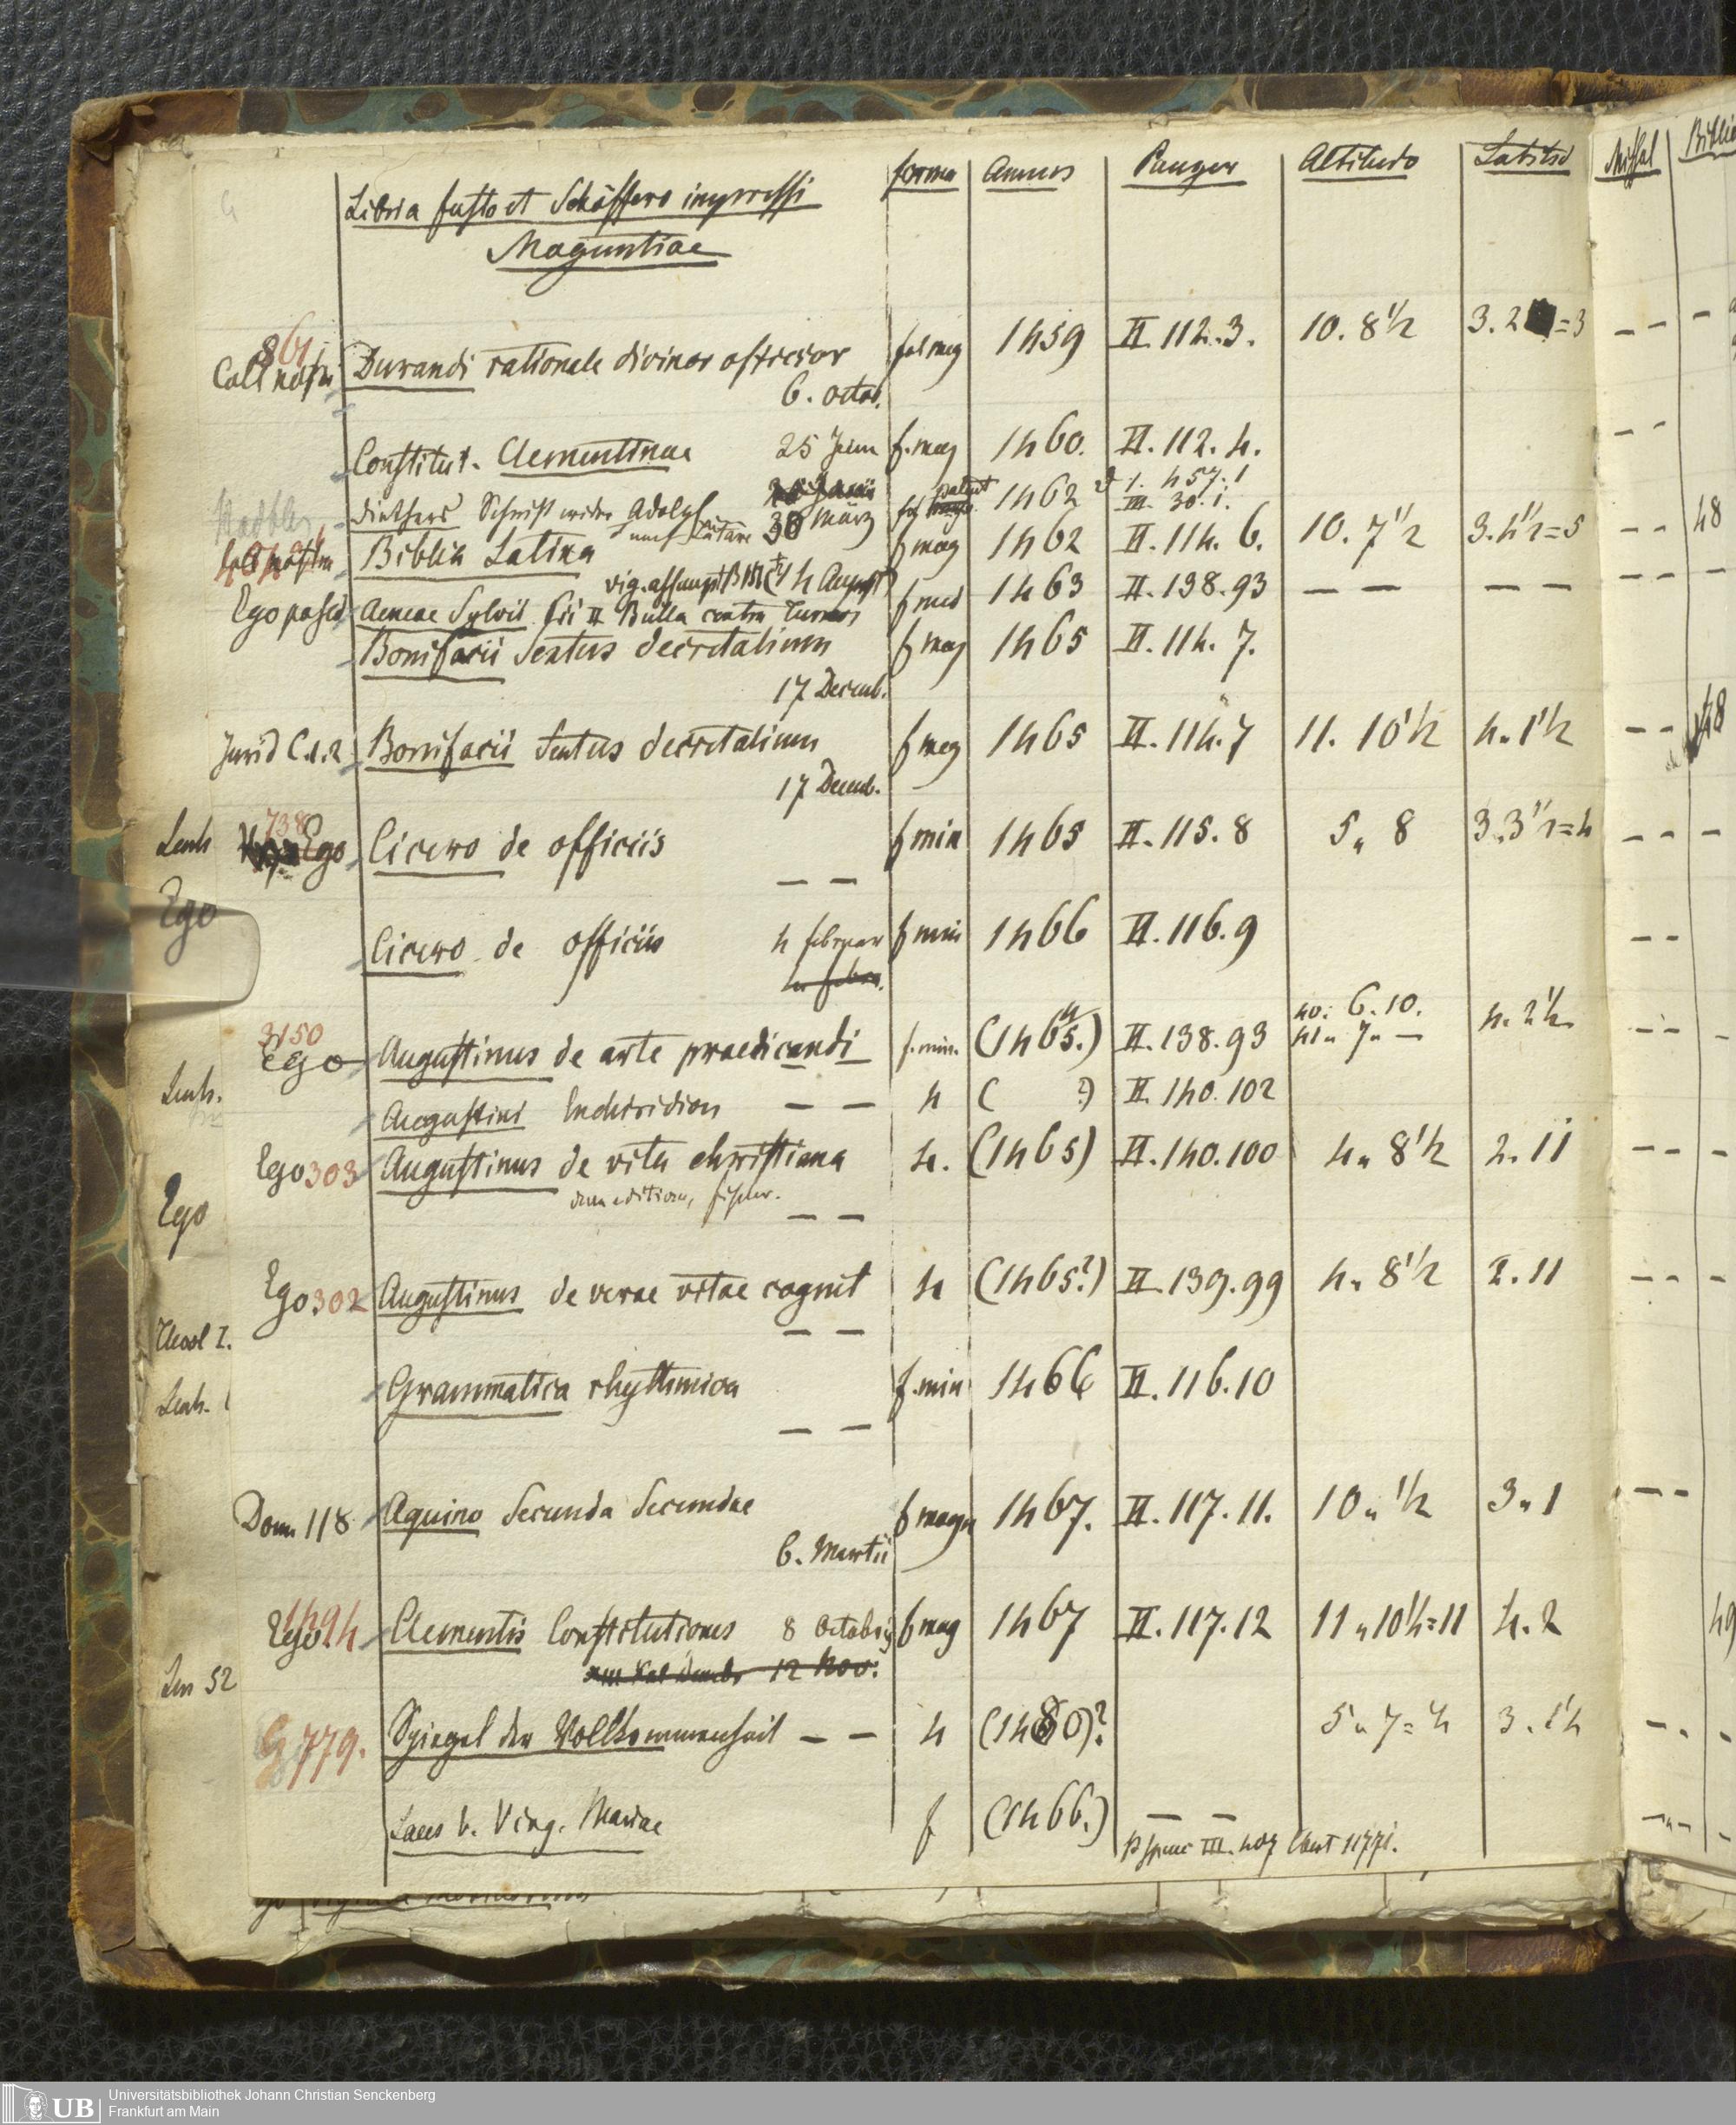 Libri a fusto et Schöffero impressi forma Annus Panzer Altitudo Latitud Missal
Maguntiae
861
Durandi rationale divinor officior fol mag 1459 II. 112. 3. 10. 8 1/2 3. 2 = 3 – –
6. octob.
Constitut. Clementinae 25 Juni f. mag 1460. II. 112. 4. – –
Diethers Schrift wider Adolf 30 März patent 1462 1. 457. 1
III. 30. 1.
Biblia Latina f mag 1462 II. 114. 6. 10. 7 1/2 3. 4 1/2 = 5 – – 48
vig. assumpt
Ego Aeneae Sylvii Pii II Bulla contra Turcos f 1463 II. 138. 93 – – – – – –
Bonifacii Sextus decretalium f mag 1465 II. 114. 7.
17 Decemb.
Jurid C. 1. 2 Bonifacii Sextus decretalium f mag 1465 II. 114. 7 11. 10 1/2 4. 1 1/2 – – 48
17 Decemb.
738
Ego Cicero de officiis f min 1465 II. 115. 8 5 " 8 3. 3 1/2 = 4 – – –
– –
Ego
Cicero de officiis 4 februar f min 1466 II. 116. 9 – –
3150
Ego Augustinus de arte praedicandi f. min. (1465.) II. 138. 93 40: 6. 10. 4. 2 1/2 – – –
41 " 7 " –
Augustini Enchiridion – – 4 ( ?) II. 140. 102
Ego 303 Augustinus de vita christiana 4. (1465) II. 140. 100 4 " 8 1/2 2. 11 – – –
– –
Ego
Ego 302 Augustinus de verae vitae cognit 4 (1465?) II. 139. 99 4 " 8 1/2 2. 11 – – –
– –
Theol I.
Grammatica rhythmica f. min 1466 II. 116. 10
– –
Dom 118 Aquino Secunda Secundae f magn 1467. II. 117. 11. 10 " 1/2 3 " 1 – –
6. Martii
Ego Clementis Constitutiones 8 Octobris f mag 1467 II. 117. 12 11 " 10 1/2 = 11 4. 2 49
12 Nov.
52
G 779. Spiegel der Vollkommenheit – – 4 (1480)? 5 " 7 = 4 – –
Laus b. Virg. Mariae f (1466.) – –
III. 407
UB Universitätsbibliothek Johann Christian Senckenberg
Frankfurt am Main